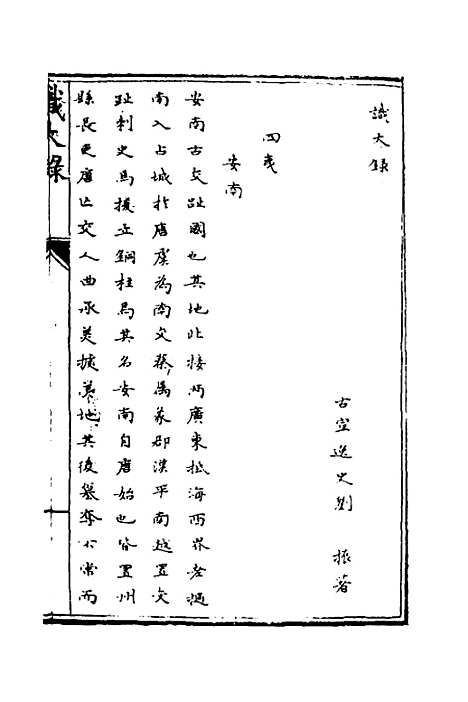 識大錄
古宣逸史劉 振著
四夷
安南
安南古交趾國也其地北接兩廣東抵海西界老撾
南入占城於唐虞為南交秦屬象郡漢平南越置交
趾刺史馬援立銅柱焉其名安南自唐始也皆置州
縣長吏唐亡交人曲承美據其地其後篡奪不常而
識大錄